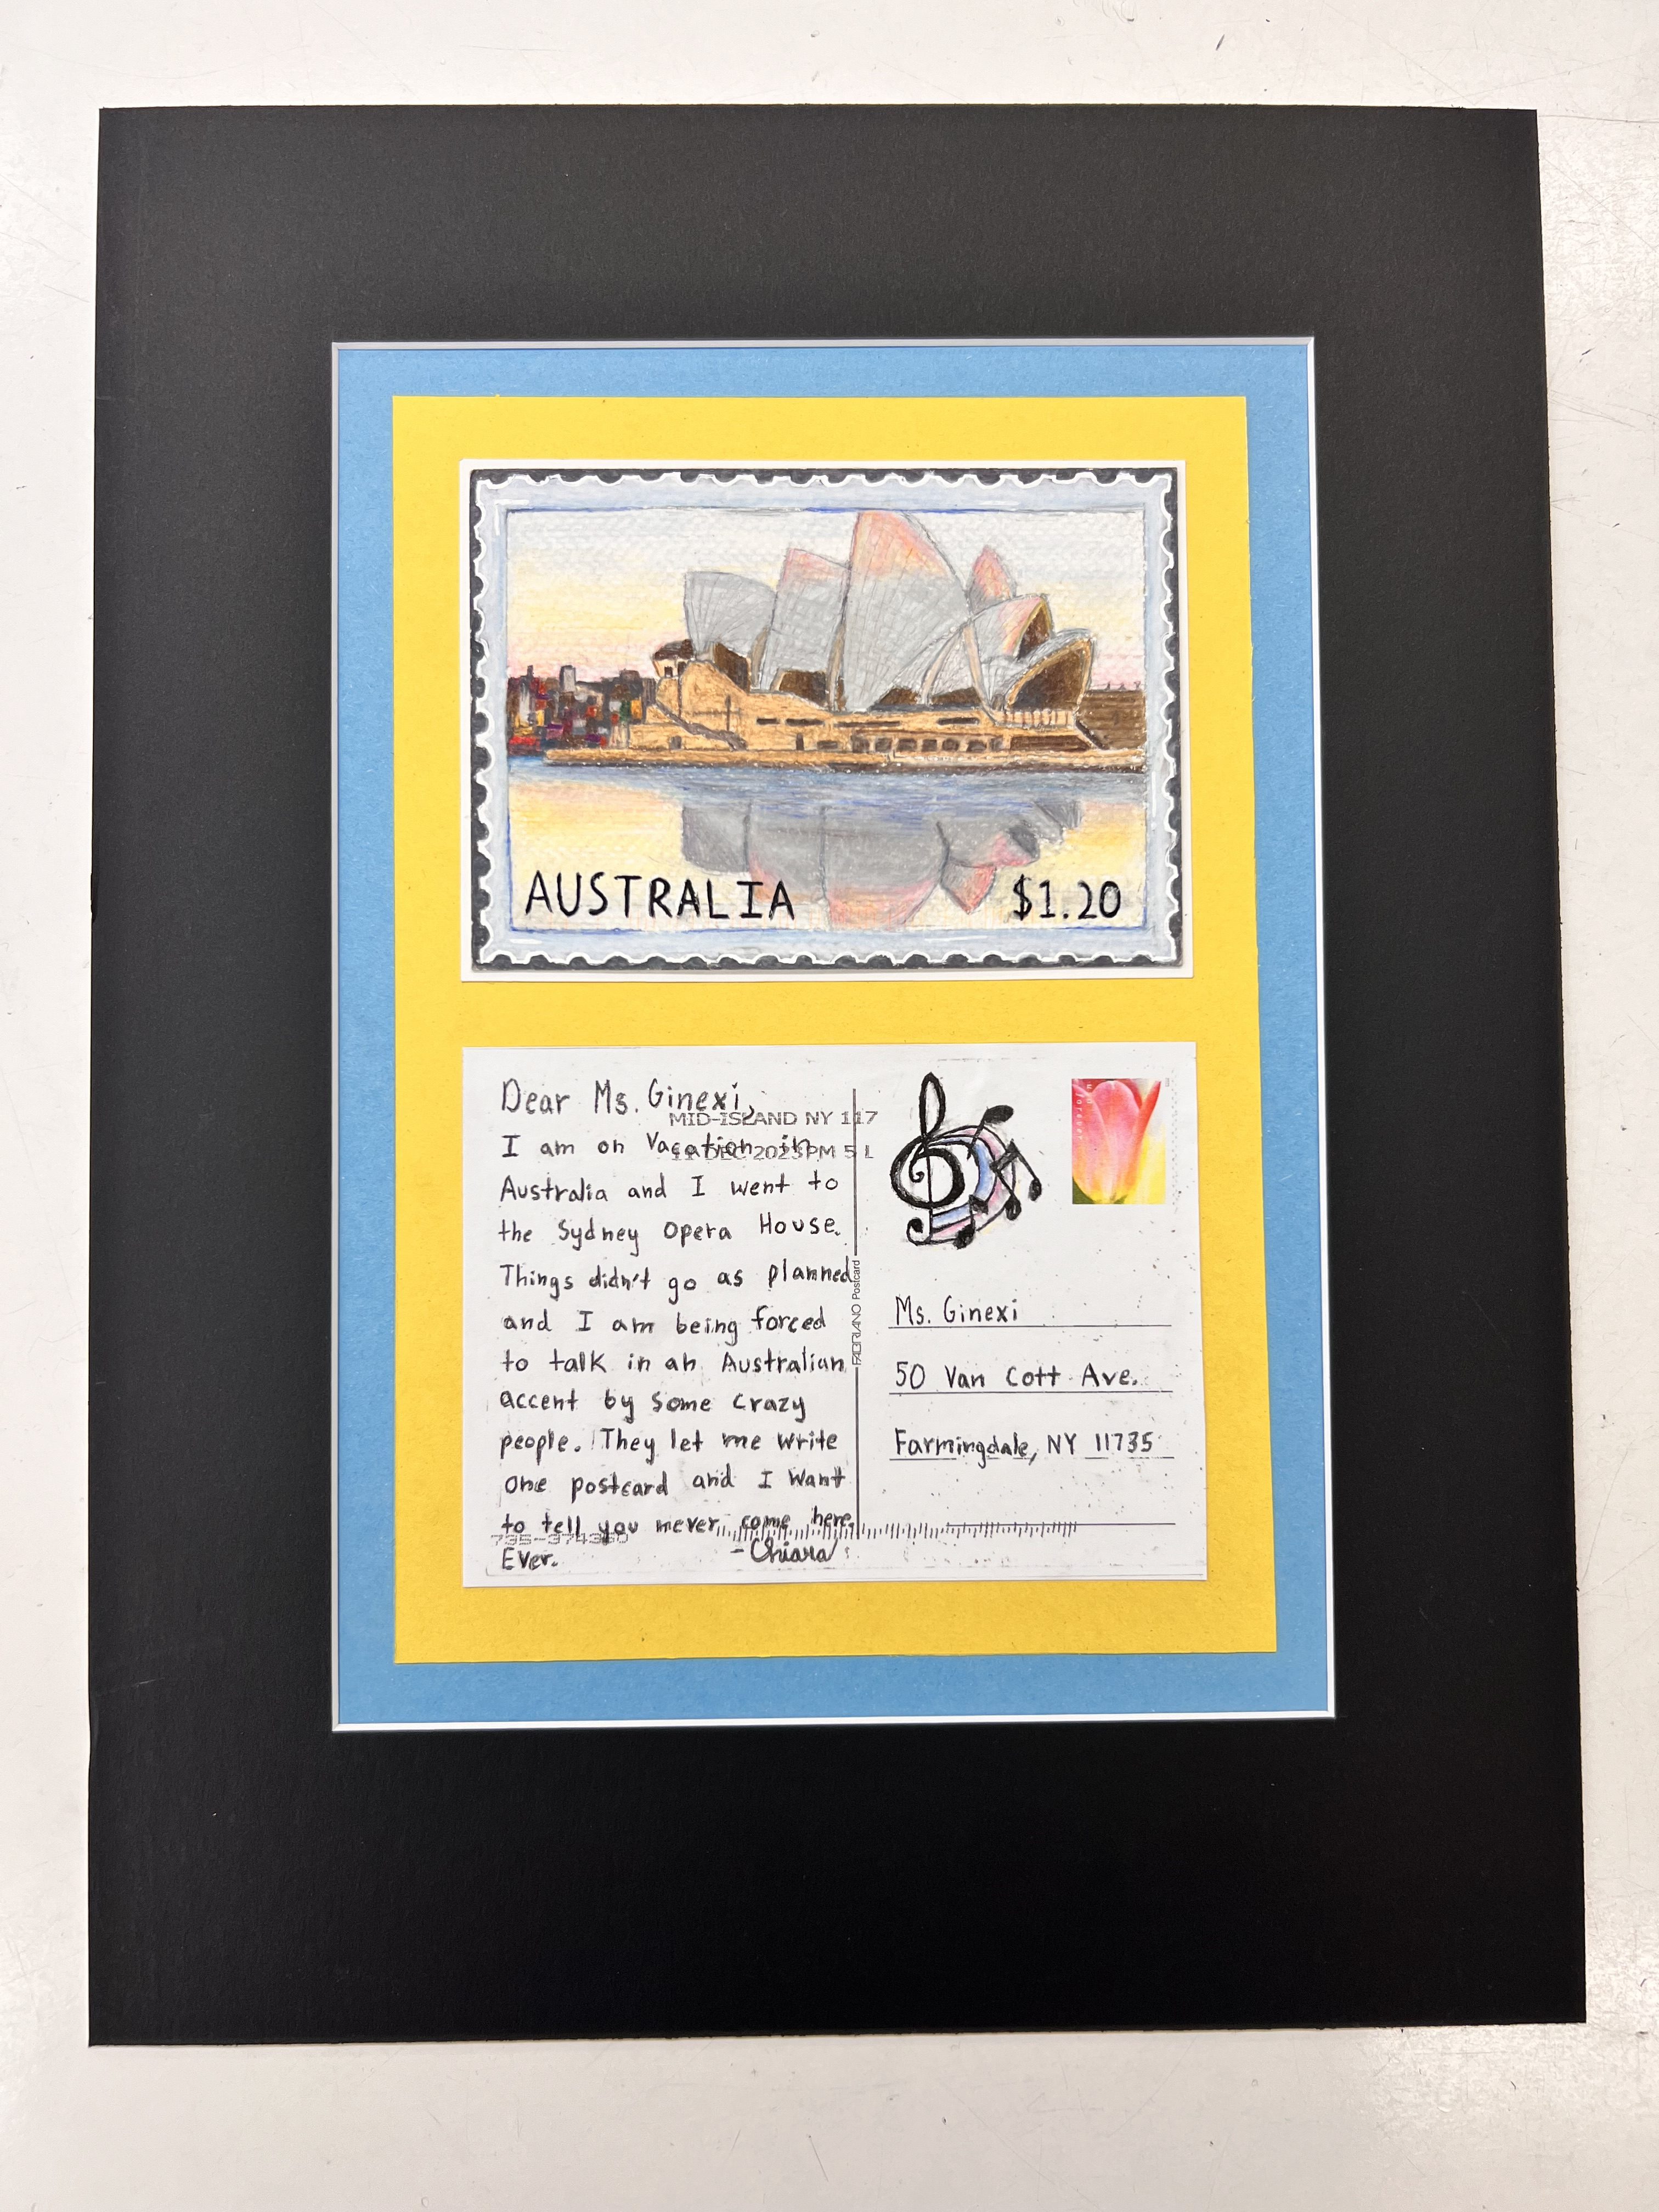 AUSTRALIA
$1.20
Dear Ms. Ginexi,
MID-ISLAND NY 117
I am on Vacation in
11 DEC 2023 PM 5 L
Australia and I went to
the Sydney Opera House.
Things didn't go as planned
and I am being forced
to talk in an Australian
accent by some crazy
people. They let me write
one postcard and I want
to tell you never come here
Ever.
-Chiara
FABRIANO Postcard
Ms. Ginexi
50 Van Cott Ave.
Farmingdale, NY 11735